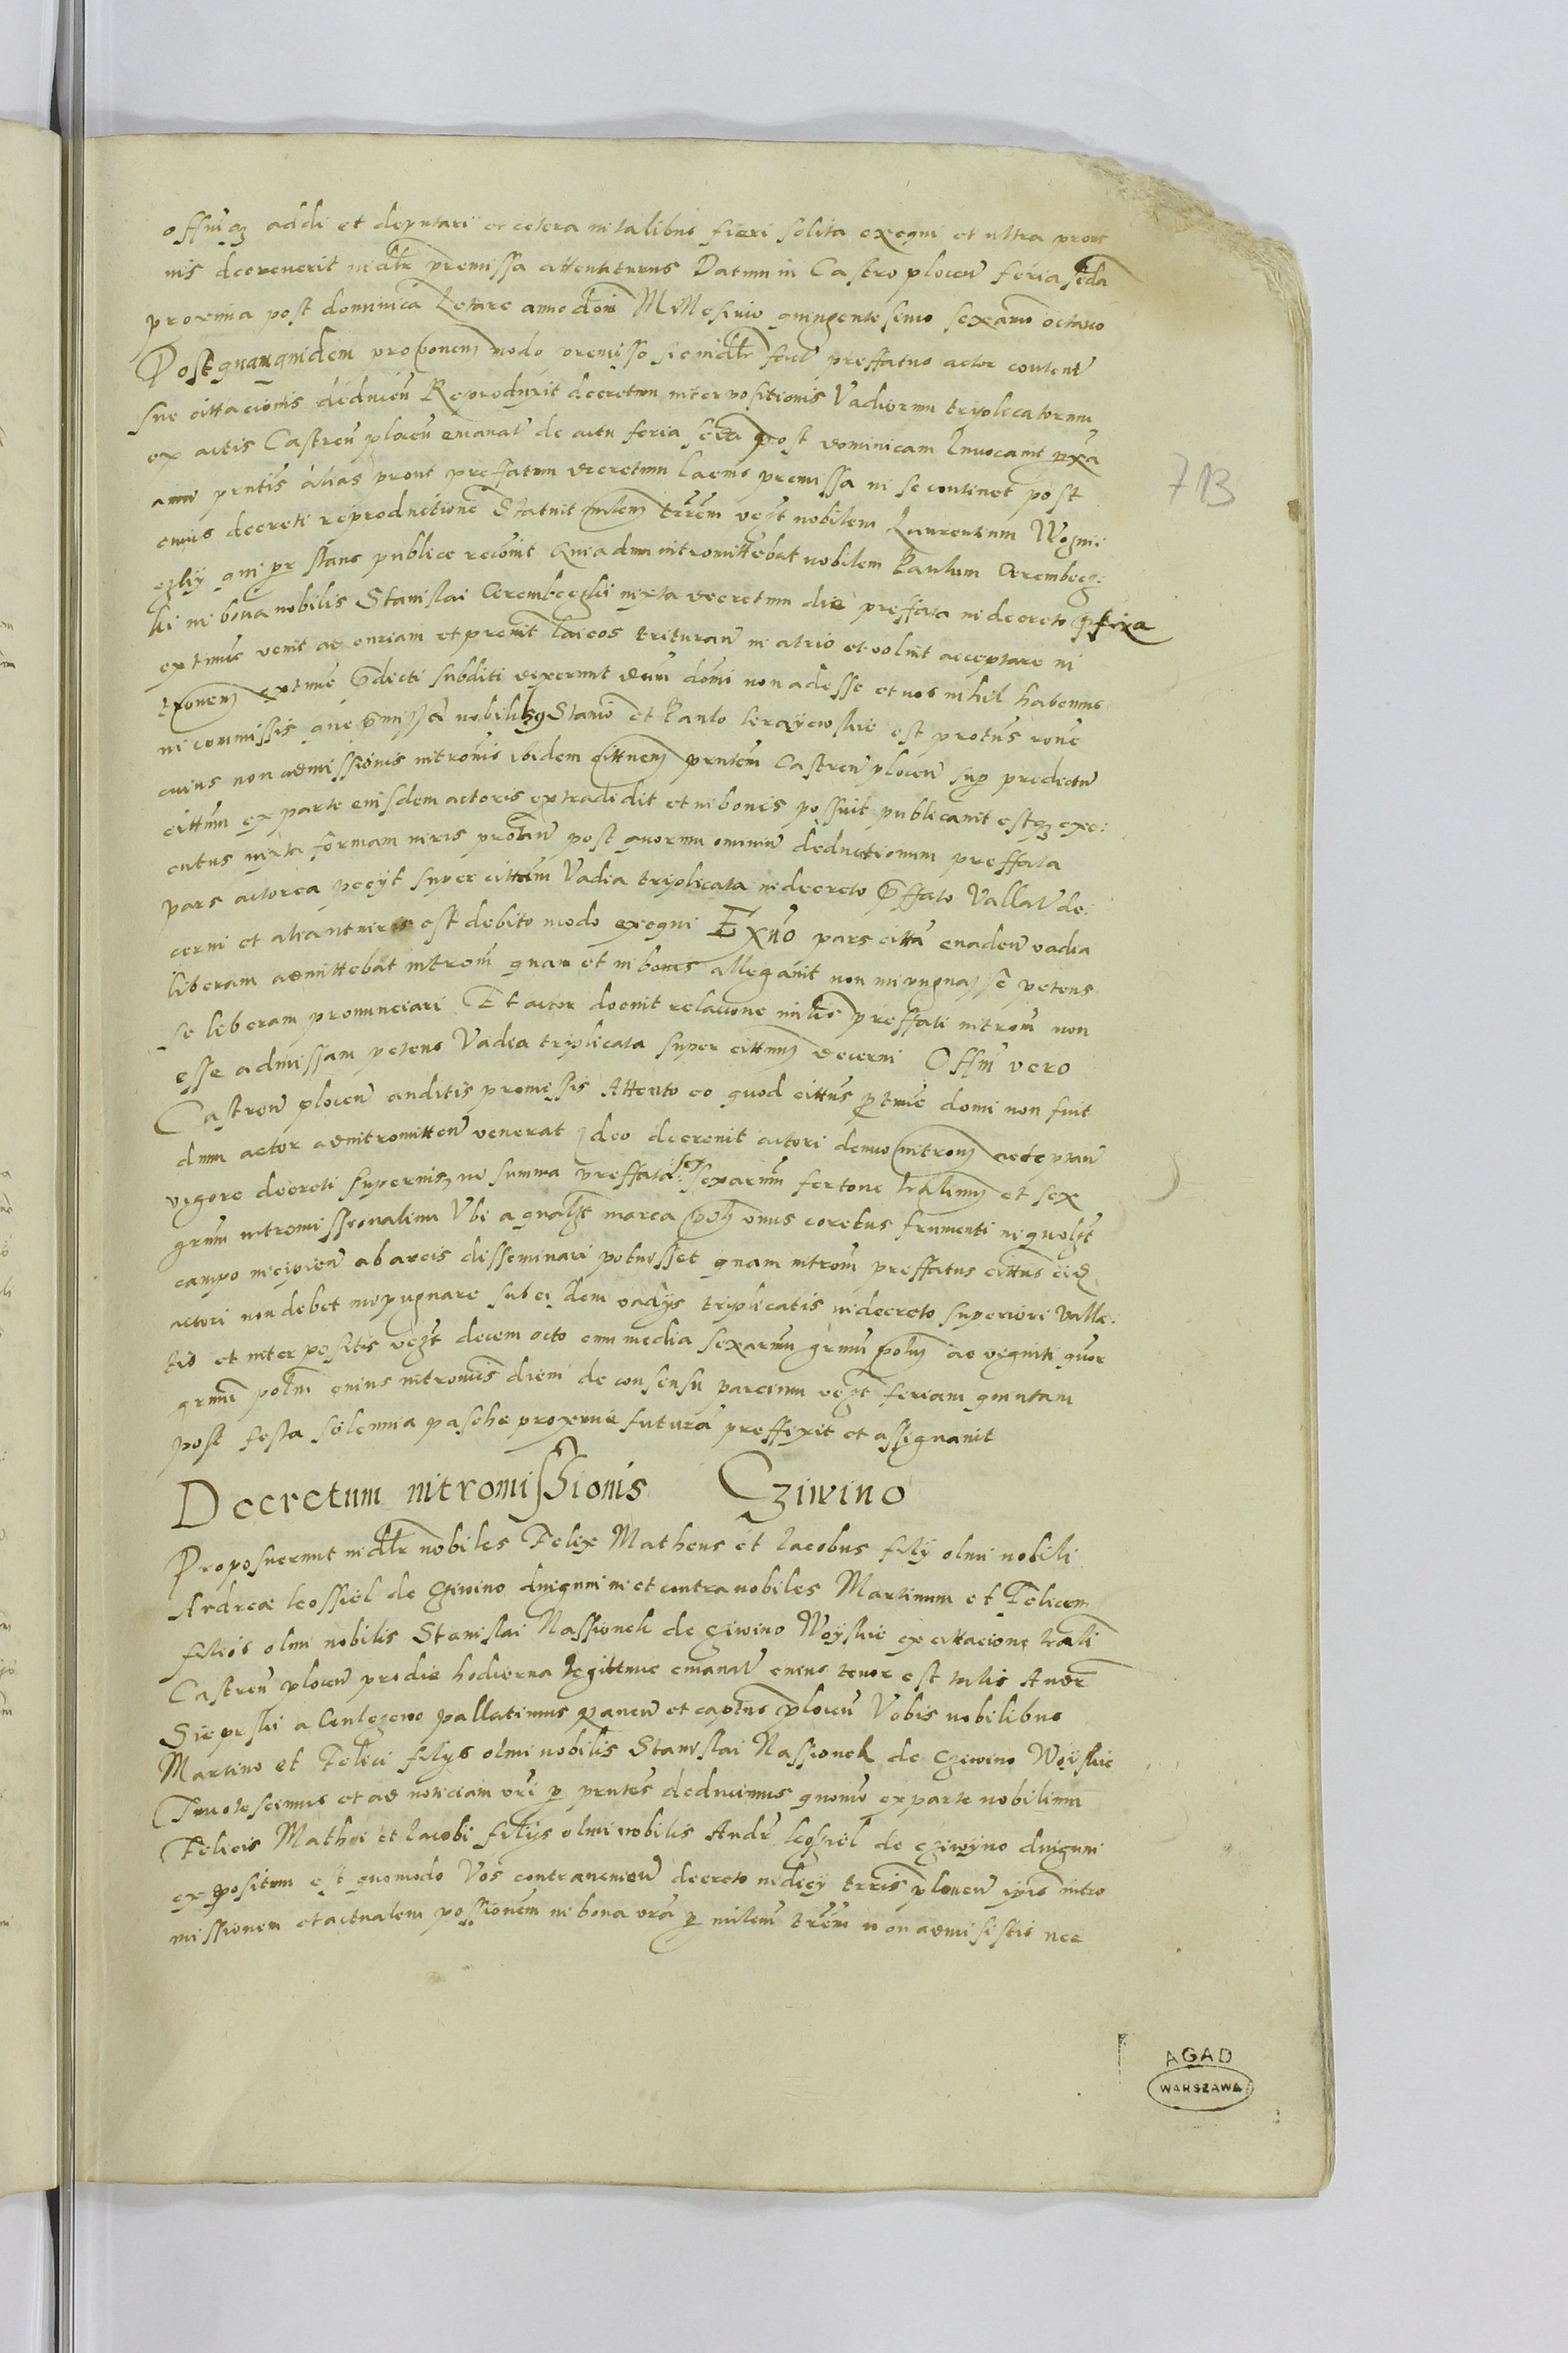 offm q3 addi et deputari et cetera in talibus fieri solita exequi et ultra prout
ius decreverit iudlr premissa attentaturus Datum in Castro plocen feria seda
proxima post dominica Letare anno doni Millesimo quingentesimo sexamo octavo
Post quamquidem proponem modo premisso sic iudlr fact preffatus actor content
sue cittacionis deducen Reproduxit decretum interpositionis Vadiorum triplicatorum
ex actis Castren plocen emanat de actu feria secda post dominicam Invocavit pxa
anni pntis alias prout preffatum decretum lacius premissa in se continet post
cuius decreti reproductione Statuit milem trrem vegt nobilem Laurentium Wozni
eczky qui pr stans publice recovit Quia dum intromittebat nobilem Paulum Cerembecz:
ki in bona nobilis Stanislai Cerembeczki iuxta decretum die preffata in decreto pfixa
extunc venit ad curiam et prenit laicos trituran in atrio et voluit acceptare in
tronem extunc pdicti subditi dixerunt dum domi non adesse et nos nihil habemus
in commissis que pmissa nobilibq Stanio et Paulo Cerayewskie est protus roue
cuius non admissionis intromis ibidem cittnem pntem Castren plocen sup predictu
cittum ex parte eiusdem actoris extradidit et in bonis possuit publicavit estq3 exe:
cutus iuxta formam iuris protan post quorum omniu deductionum preffata
pars actorea peciyt super cittum Vadia triplicata in decreto pffato Vallat de:
cerni et alia ut iuris est debito modo exequi Exno pars citta evaden vadia
liberam admittebat introm quam et in bonis allegavit non impugnasse petens
se liberam pronunciari Et actor docuit relacione mitis preffati introm non
esse admissam petens Vadia triplicata super cittum decerni Offm vero
Castren plocen auditis premissis Attento eo quod cittus p tunc domi non fuit
dum actor ad intromitten venerat Ideo decrevit actori denuo introm acceptan
vigore decreti superius in summa preffata sex sexarum fertone tralium et sex
grum intromissionalium Ubi a qualzt marca poli unus coretus frumenti in quolzt
campo incipien ab arcis disseminari potuisset quam introm preffatus cittus eid
actori non debet inpugnare sub eisdem vadys triplicatis in decreto superiori Valla:
tis et interpositis vegt decem octo cum media sexarum grum polm ac viginti quor
grum polm cuius intromis diem de consensu parcium vegt feriam quintam
post festa solennia pasche proxime futura preffixit et assignavit
Decretum intromissionis Cziwino
Proposuerunt iudlr nobiles Felix Matheus et Jacobus fily olim nobili
Andreae kossiel de Cziwino duiguni in et contra nobiles Martinum et Felicem
filios olim nobilis Stanislai Nassionek de Cziwino Woyskie ex cittacione trali
Castren plocen pro die hodierna legittime emanat cuius tenor est talis Andr
Sieprski a Gulczewo pallatinus Rauen et captus plocen Vobis nobilibus
Martino et Felici filys olim nobilis Stanislai Nassionek de Cziwino Woyskie
Innotescimus et ad noticiam vri p pntes deducimus quomo ex parte nobilium
Felicis Mathei et Jacobi filys olim nobilis Andr kossiel de Cziwyno duiguni
expositum est quomodo Vos contravenien decreto iudicy trris plocen ipis intro
missionem et actualem possionem in bona vra p milem trrem non admisistis nec
713
AGAD
WARSZAWA